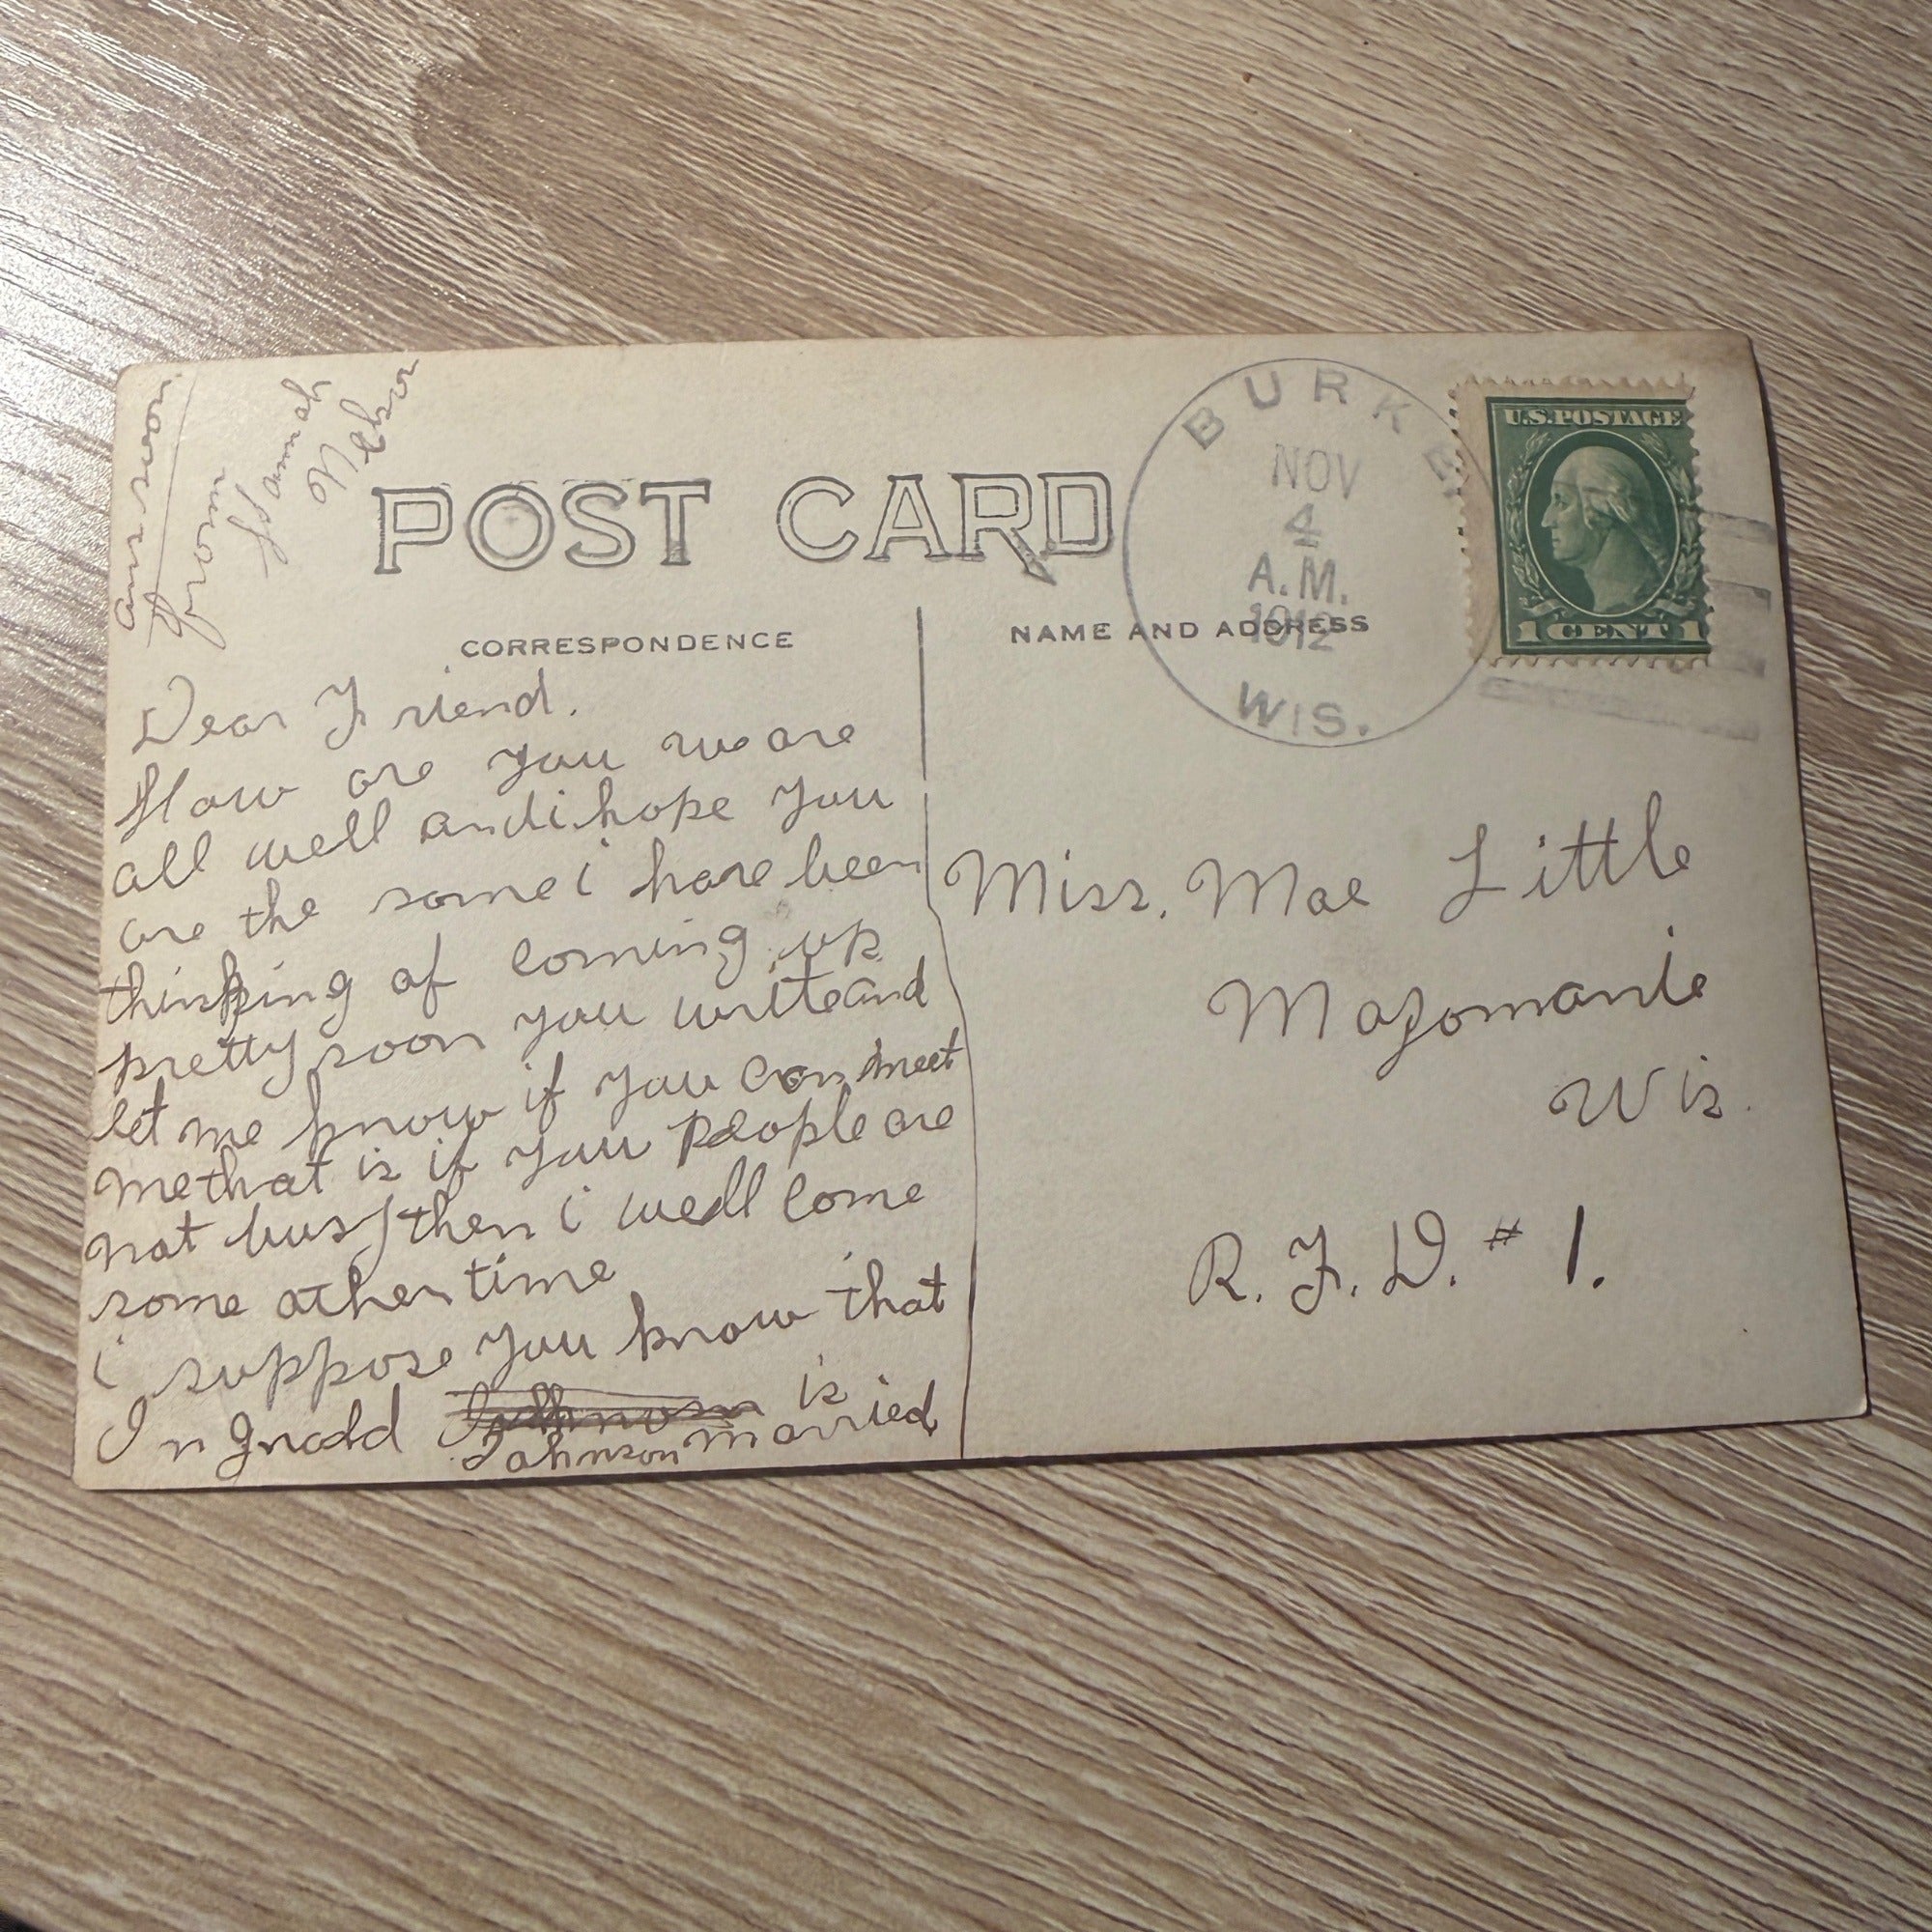 ans soon
from
Hannah
Nelson
POST CARD
CORRESPONDENCE
NAME AND ADDRESS
BURKE
NOV
4
A.M.
1912
WIS.
U.S. POSTAGE
1 CENT 1
Dear Friend.
How are you we are
all well and i hope you
are the same i have been
thinking of coming up
pretty soon you write and
let me know if you can meet
me that is if you people are
not busy then i well come
some other time
i suppose you know that
Johnson is
Johnson married
Miss. Mae Little
Mazomanie
Wis.
R. F. D. # 1.